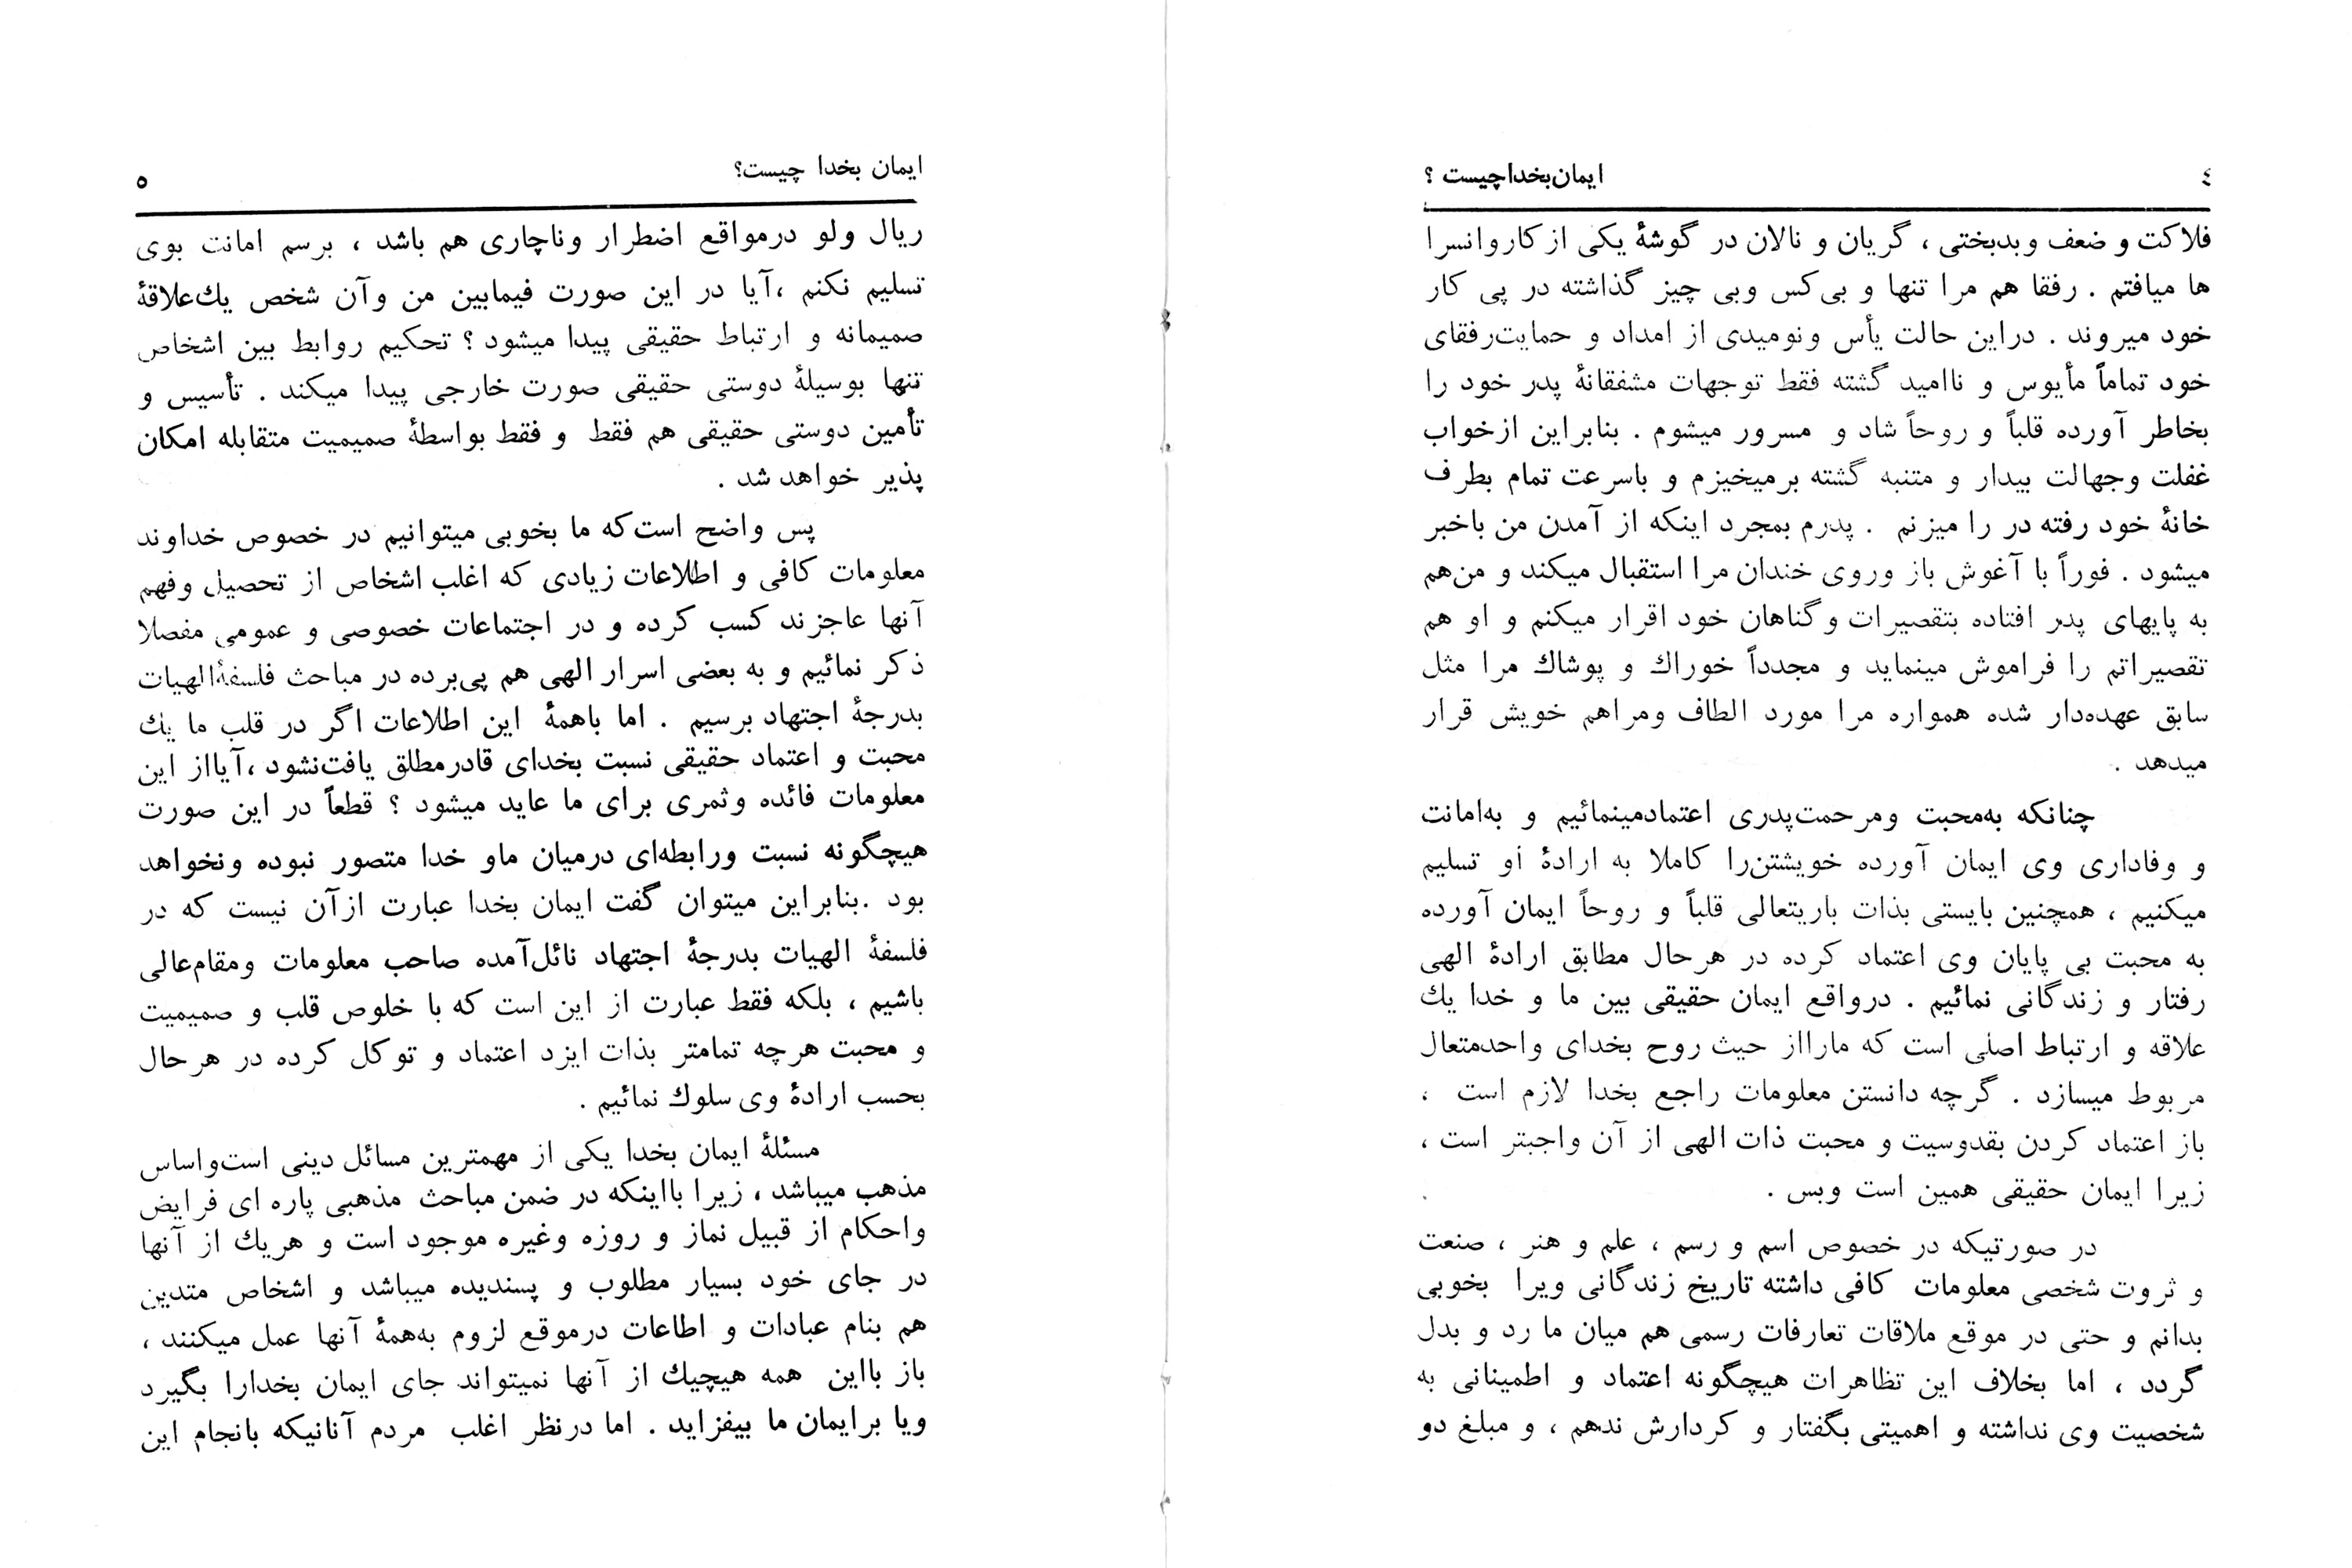 ٤ ایمان بخدا چیست ؟
فلاکت و ضعف وبدبختی ، گریان و نالان در گوشهٔ یکی از کاروانسرا
ها میافتم . رفقا هم مرا تنها و بی‌کس وبی چیز گذاشته در پی کار
خود میروند . دراین حالت یأس ونومیدی از امداد و حمایت‌رفقای
خود تماماً مأیوس و ناامید گشته فقط توجهات مشفقانهٔ پدر خود را
بخاطر آورده قلباً و روحاً شاد و مسرور میشوم . بنابراین ازخواب
غفلت وجهالت بیدار و متنبه گشته برمیخیزم و باسرعت تمام بطرف
خانهٔ خود رفته در را میزنم . پدرم بمجرد اینکه از آمدن من باخبر
میشود . فوراً با آغوش باز وروی خندان مرا استقبال میکند و من‌هم
به پایهای پدر افتاده بتقصیرات وگناهان خود اقرار میکنم و او هم
تقصیراتم را فراموش مینماید و مجدداً خوراك و پوشاك مرا مثل
سابق عهده‌دار شده همواره مرا مورد الطاف ومراهم خویش قرار
میدهد .
چنانکه به‌محبت ومرحمت‌پدری اعتمادمینمائیم و به‌امانت
و وفاداری وی ایمان آورده خویشتن‌را کاملا به ارادهٔ او تسلیم
میکنیم ، همچنین بایستی بذات باریتعالی قلباً و روحاً ایمان آورده
به محبت بی پایان وی اعتماد کرده در هرحال مطابق ارادهٔ الهی
رفتار و زندگانی نمائیم . درواقع ایمان حقیقی بین ما و خدا یك
علاقه و ارتباط اصلی است که مارااز حیث روح بخدای واحدمتعال
مربوط میسازد . گرچه دانستن معلومات راجع بخدا لازم است ،
باز اعتماد کردن بقدوسیت و محبت ذات الهی از آن واجبتر است ،
زیرا ایمان حقیقی همین است وبس .
در صورتیکه در خصوص اسم و رسم ، علم و هنر ، صنعت
و ثروت شخصی معلومات کافی داشته تاریخ زندگانی ویرا بخوبی
بدانم و حتی در موقع ملاقات تعارفات رسمی هم میان ما رد و بدل
گردد ، اما بخلاف این تظاهرات هیچگونه اعتماد و اطمینانی به
شخصیت وی نداشته و اهمیتی بگفتار و کردارش ندهم ، و مبلغ دو
ایمان بخدا چیست؟ ٥
ریال ولو درمواقع اضطرار وناچاری هم باشد ، برسم امانت بوی
تسلیم نکنم ،آیا در این صورت فیمابین من وآن شخص یك‌علاقهٔ
صمیمانه و ارتباط حقیقی پیدا میشود ؟ تحکیم روابط بین اشخاص
تنها بوسیلهٔ دوستی حقیقی صورت خارجی پیدا میکند . تأسیس و
تأمین دوستی حقیقی هم فقط و فقط بواسطهٔ صمیمیت متقابله امکان
پذیر خواهد شد .
پس واضح است‌که ما بخوبی میتوانیم در خصوص خداوند
معلومات کافی و اطلاعات زیادی که اغلب اشخاص از تحصیل وفهم
آنها عاجزند کسب کرده و در اجتماعات خصوصی و عمومی مفصلا
ذکر نمائیم و به بعضی اسرار الهی هم پی‌برده در مباحث فلسفهٔ‌الهیات
بدرجهٔ اجتهاد برسیم . اما باهمهٔ این اطلاعات اگر در قلب ما یك
محبت و اعتماد حقیقی نسبت بخدای قادرمطلق یافت‌نشود ،آیااز این
معلومات فائده وثمری برای ما عاید میشود ؟ قطعاً در این صورت
هیچگونه نسبت ورابطه‌ای درمیان ماو خدا متصور نبوده ونخواهد
بود .بنابراین میتوان گفت ایمان بخدا عبارت ازآن نیست که در
فلسفهٔ الهیات بدرجهٔ اجتهاد نائل‌آمده صاحب معلومات ومقام‌عالی
باشیم ، بلکه فقط عبارت از این است که با خلوص قلب و صمیمیت
و محبت هرچه تمامتر بذات ایزد اعتماد و توکل کرده در هرحال
بحسب ارادهٔ وی سلوك نمائیم .
مسئلهٔ ایمان بخدا یکی از مهمترین مسائل دینی است‌واساس
مذهب میباشد ، زیرا بااینکه در ضمن مباحث مذهبی پاره ای فرایض
واحکام از قبیل نماز و روزه وغیره موجود است و هریك از آنها
در جای خود بسیار مطلوب و پسندیده میباشد و اشخاص متدین
هم بنام عبادات و اطاعات درموقع لزوم به‌همهٔ آنها عمل میکنند ،
باز بااین همه هیچیك از آنها نمیتواند جای ایمان بخدارا بگیرد
ویا برایمان ما بیفزاید . اما درنظر اغلب مردم آنانیکه بانجام این